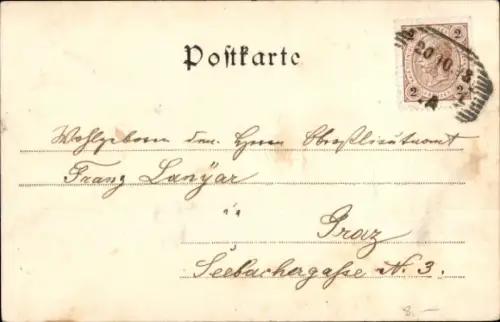 Postkarte
2 2
2 2
20 10
Wohlgeboren dem Herrn Oberstlieutnant
Franz Lanÿar
in
Graz
Seebachergasse N. 3.
8.-